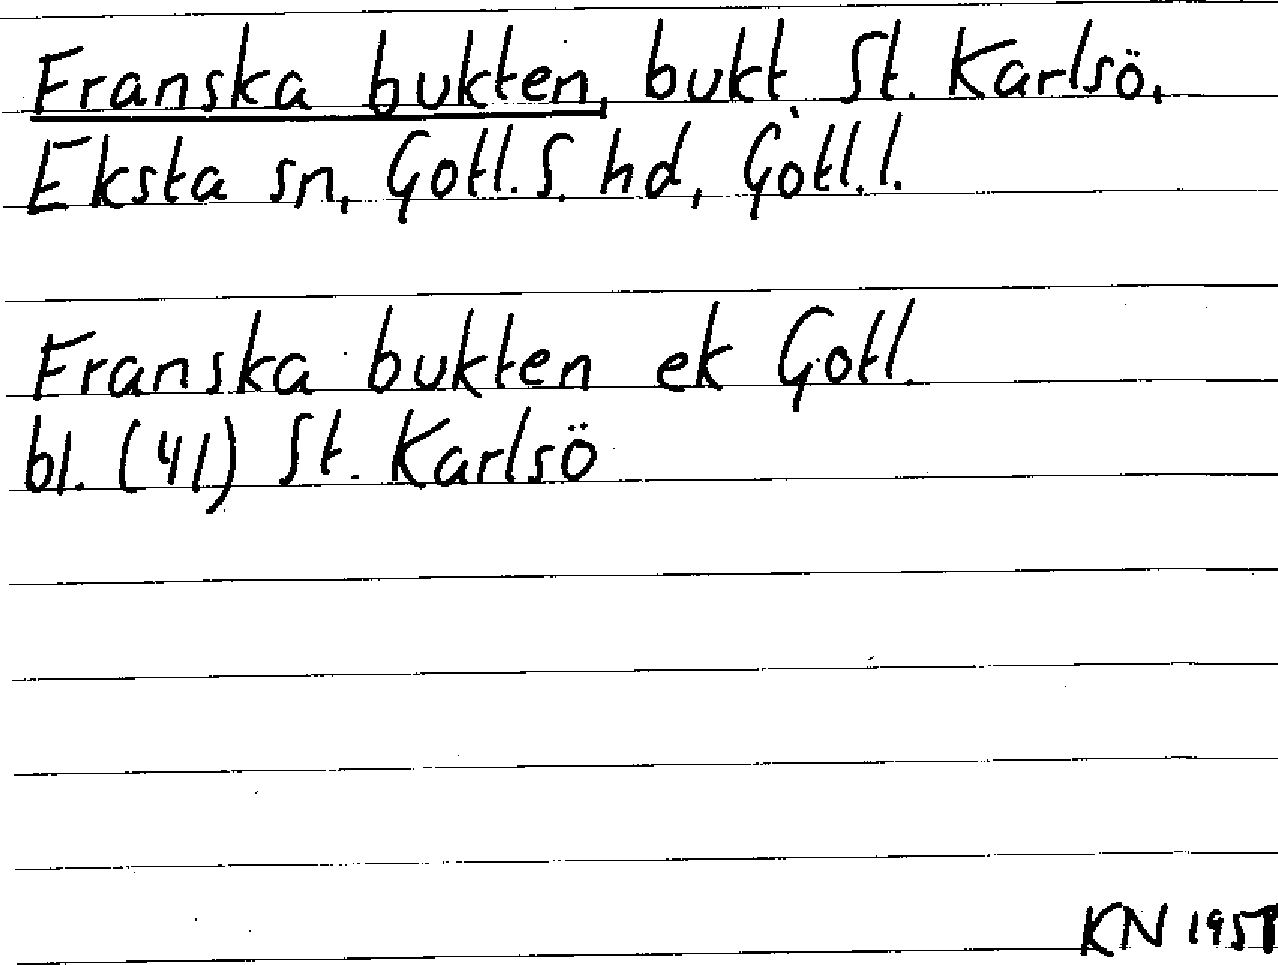 Franska bukten, bukt St. Karlsö,
Eksta sn, Gotl. S. hd, Gotl. l.
Franska bukten ek Gotl.
bl. (41) St. Karlsö
KN